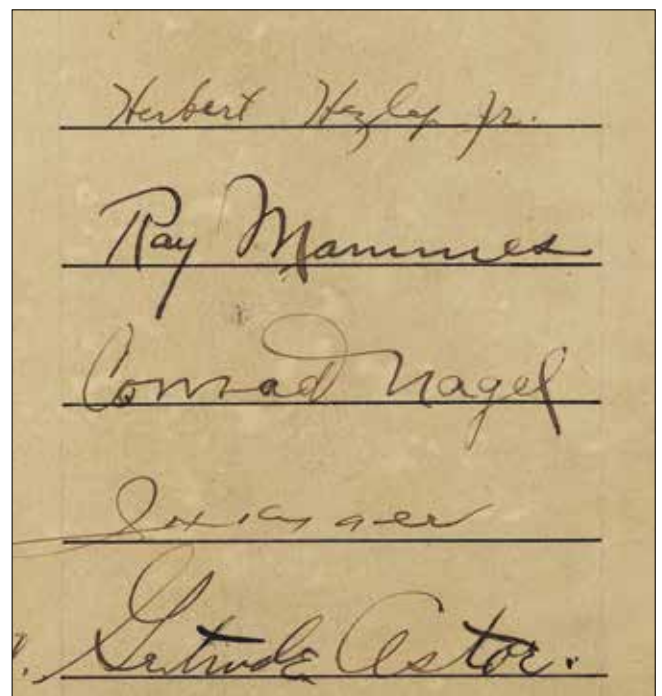 Herbert Jr.
Ray Mammes
Conrad Nagel
Gertrude Astor.